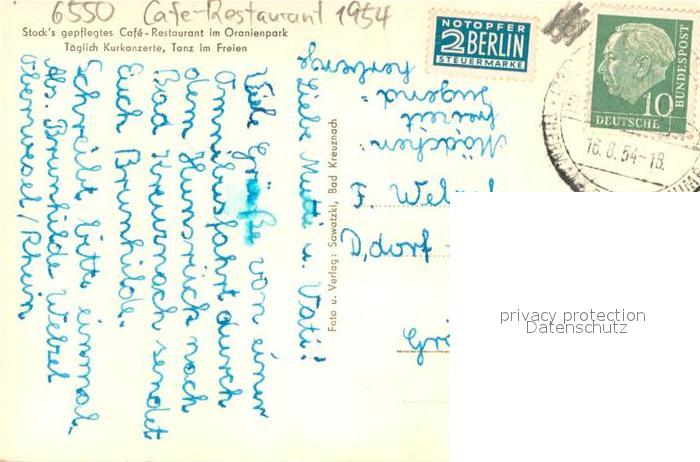 6550 Cafe-Restaurant 1954
Stock's gepflegtes Café-Restaurant im Oranienpark
Täglich Kurkonzerte, Tanz im Freien
Liebe Mutti u. Vati!
Viele Grüße von einer
Omnibusfahrt durch
den Hunsrück nach
Bad Kreuznach sendet
Euch Brunhilde.
Schreibt bitte einmal.
Adr. Brunhilde Welzel
Oberwesel/Rhein
Mädchen-
freizeit
Jugend=
herberge
Foto u. Verlag: Sawatzki, Bad Kreuznach
NOTOPFER
2 BERLIN
STEUERMARKE
10
DEUTSCHE
BUNDESPOST
16.8.54-18
F. Welzel
D,dorf -
privacy protection
Datenschutz